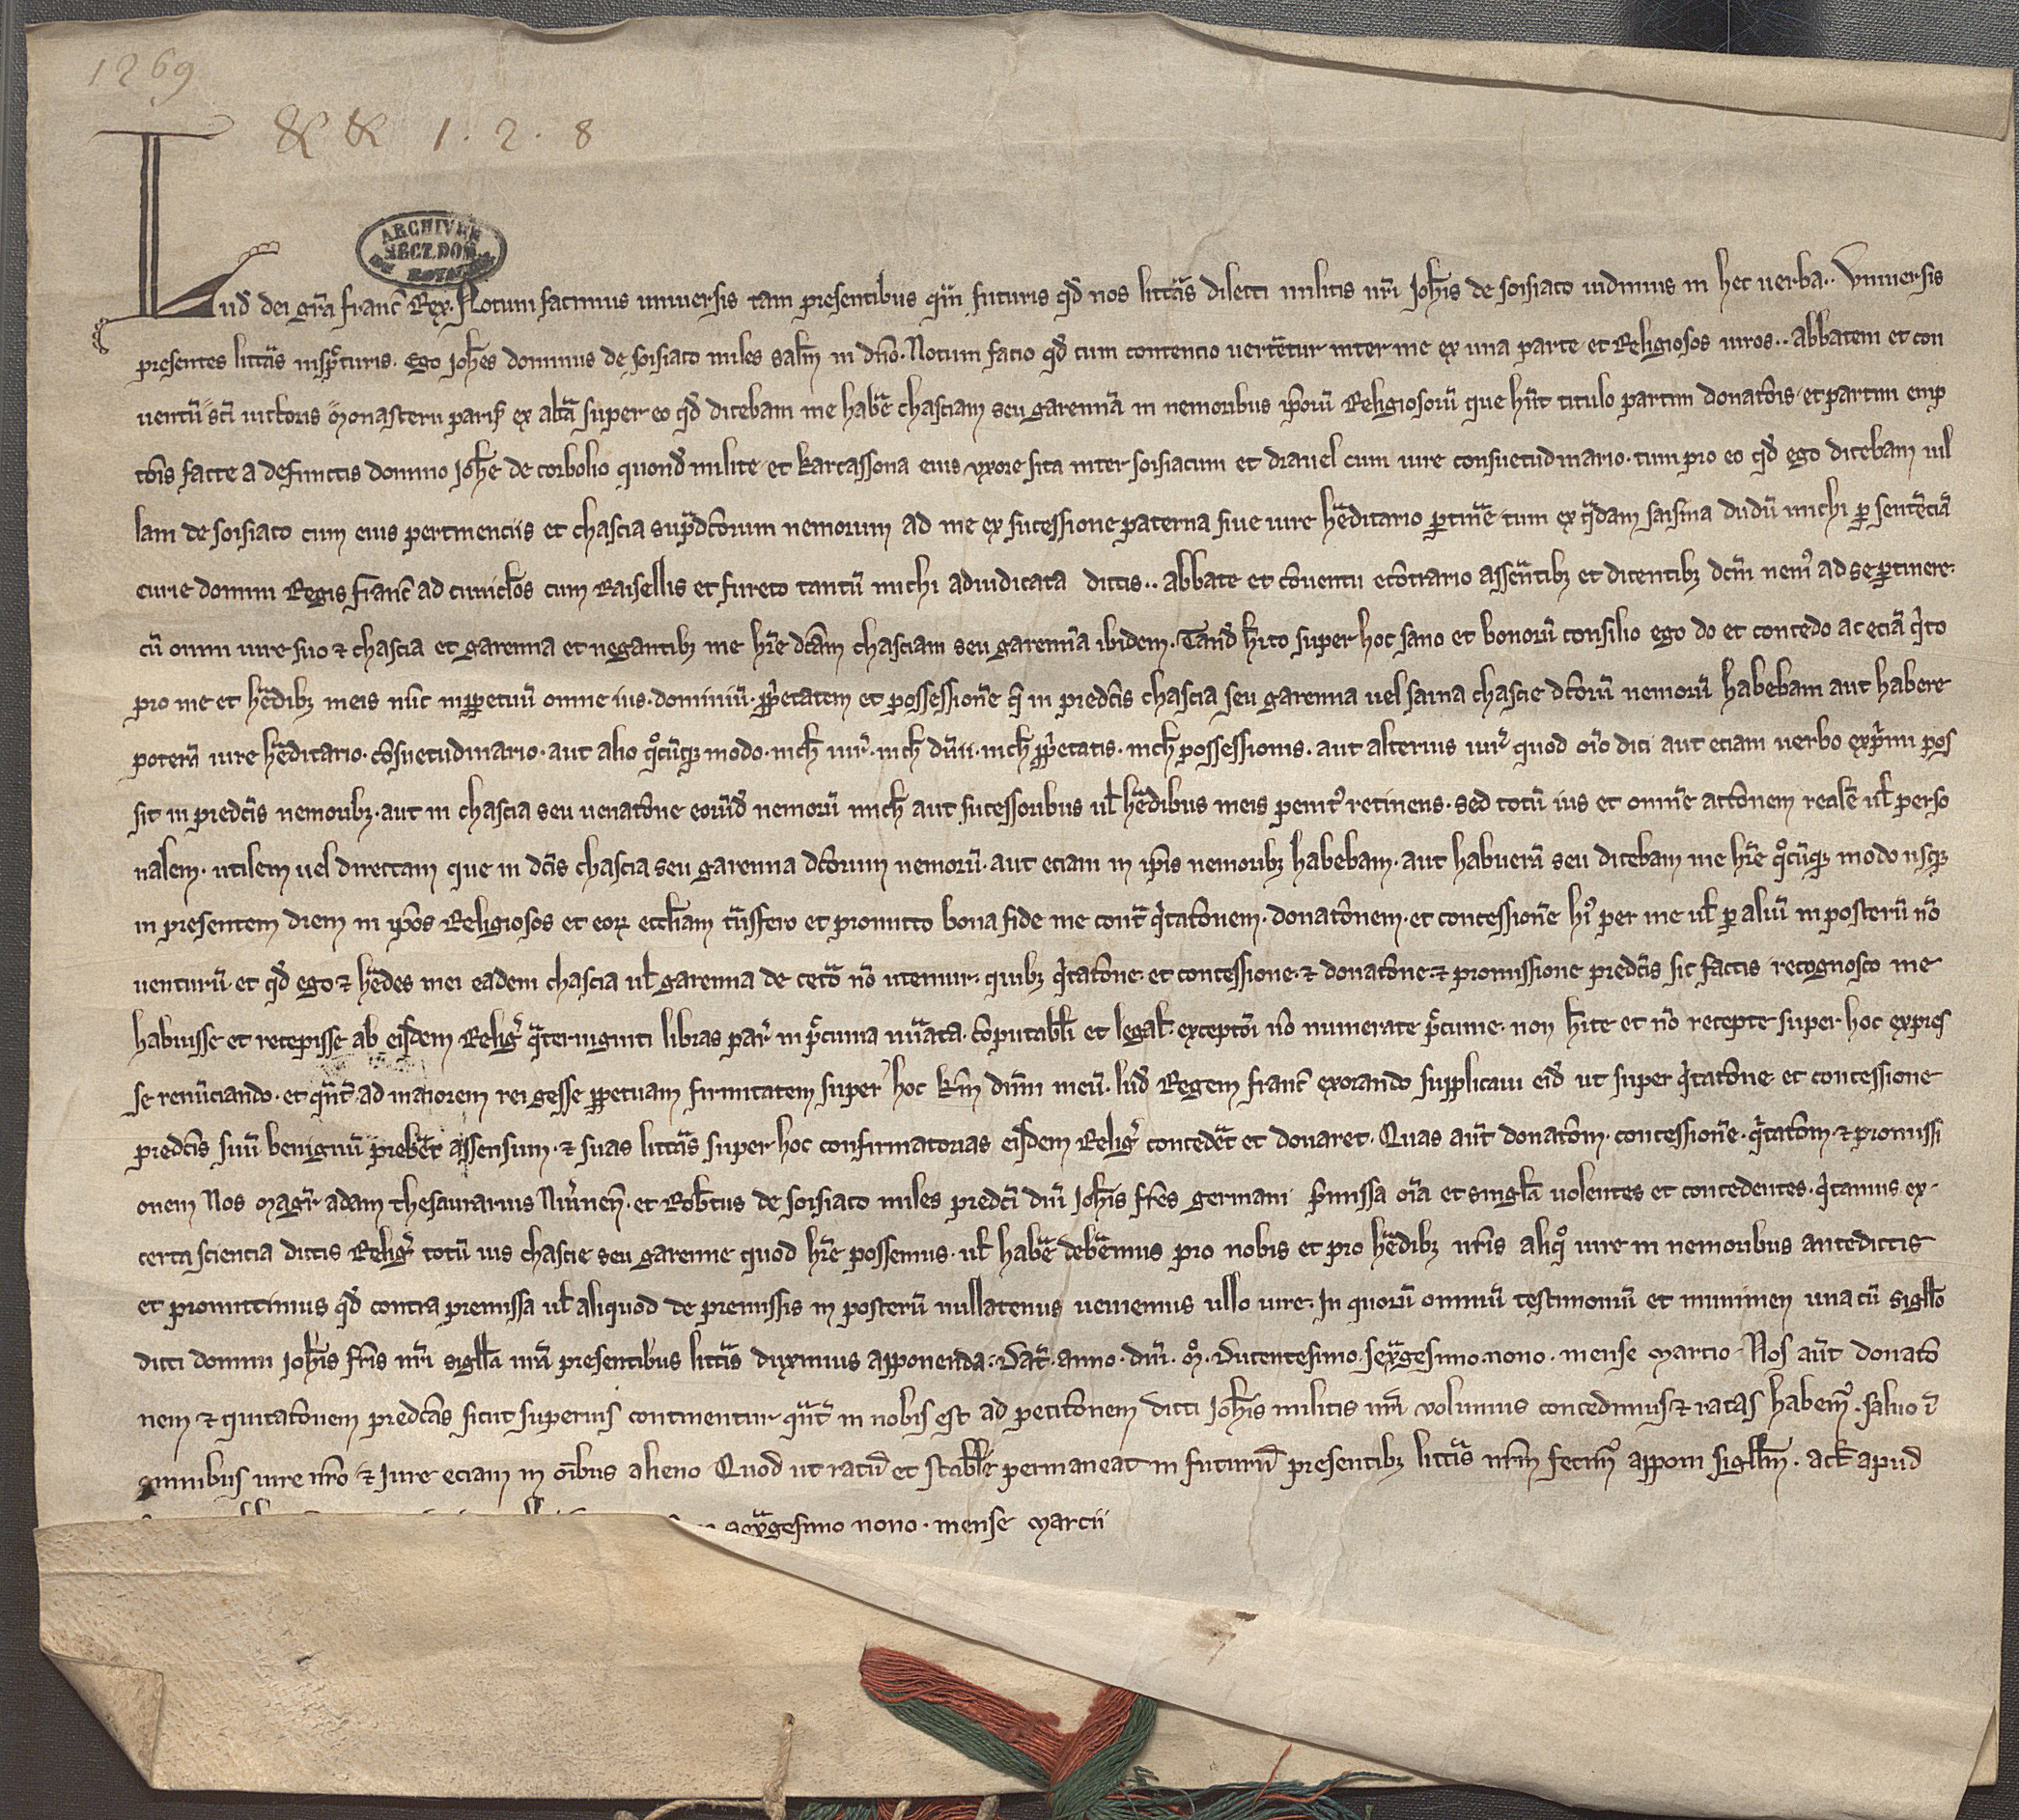 1269
& & 1. 2. 8
ARCHIVES
SECT. DOM
DU ROYAUME
Lud dei gra franc Rex. Notum facimus universis tam presentibus quam futuris qd nos litteras dilecti militis nri Johis de soisiaco vidimus in hec verba.. Universis
presentes litteras inspecturis. Ego Johes dominus de soisiaco miles salm in dno. Notum facio qd cum contencio verteretur inter me ex una parte et Religiosos viros.. abbatem et con
ventu sci victoris monasterii paris ex altera super eo qd dicebam me habere chasciam seu garennam in nemoribus ipsoru Religiosoru que hnt titulo partim donatois et partim emp
tois facte a defunctis domino Johe de corbolio quond milite et karcassona eius uxore sita inter soisiacum et dravel cum iure consuetudinario. tum pro eo qd ego dicebam vil
lam de soisiaco cum eius pertinenciis et chascia supradctorum nemorum ad me ex sucessione paterna sive iure hereditario pertinere tum ex quadam saisina dudu michi per sentencia
curie domini Regis franc ad cuniclos cum Raisellis et fureto tantu michi adiudicata dictis.. abbate et conventu econtrario asserentibz et dicentibz dcm nemus ad se pertinere.
cu omni iure suo et chascia et garenna et negantibz me hre dcam chasciam seu garenna ibidem. Tand hito super hoc sano et bonoru consilio ego do et concedo ac ecia quito
pro me et heredibz meis nunc inperpetuu omne ius. dominiu. proprietatem et possessione quam in predcis chascia seu garenna vel saisina chascie dctoru nemoru habebam aut habere
potera iure hereditario. consuetudinario. aut alio quocunque modo. nich iuris. nich dnii. nich proprietatis. nich possessionis. aut alterius iuris quod oio dici aut eciam verbo exprimi pos
sit in predcis nemoribz. aut in chascia seu venatone eorund nemoru mich aut sucessoribus vl heredibus meis penitus retinens. sed totu ius et omne actonem reale vl perso
nalem. utilem vel directam que in dcis chascia seu garenna dctorum nemoru. aut eciam in ipis nemoribz habebam. aut habuera seu dicebam me hre quocunque modo usque
in presentem diem in ipos Religiosos et eorum eccliam transfero et promitto bona fide me contra quitatonem. donatonem. et concessione huius per me vl per aliu in posteru no
venturu et qd ego et heredes mei eadem chascia vl garenna de cetero no utemur. quibz quitatone. et concessione. et donatone. et promissione predcis sic factis recognosco me
habuisse et recepisse ab eisdem Relig quaterviginti libras par in pecunia numerata. computabli et legal. exceptoi no numerate pecunie. non hite et no recepte super hoc expres
se renunciando. et quant ad maiorem rei geste perpetuam firmitatem super hoc km dnm meu. lud Regem franc exorando supplicavi eid ut super quitatone. et concessione
predcis suu benignu preberet assensum. et suas litteras super hoc confirmatorias eisdem Relig concederet et donaret. Quas aut donatom. concessione. quitatom. et promissi
onem Nos magr adam thesaurarius Nivernen. et Robtus de soisiaco miles predci dni Johis fres germani premissa oia et singla volentes et concedentes. quitamus ex.
certa sciencia dictis Relig totu ius chascie seu garenne quod hre possemus. vl habere deberemus pro nobis et pro heredibz nris aliquo iure in nemoribus antedictis
et promittimus qd contra premissa vl aliquod de premissis in posteru nullatenus veniemus ullo iure. In quoru omniu testimoniu et munimen una cu sigillo
dicti domini Johis fris nri sigilla nra presentibus litteris duximus apponenda. Dat. anno. dni. mo. Ducentesimo. sexagesimo. nono. mense marcio. Nos aut donato
nem et quitatonem predctas sicut superius continentur quant in nobis est ad petitonem dicti Johis militis nri volumus concedimus et ratas habemus. salvo in
omnibus iure nro et Iure eciam in oibus alieno Quod ut ratu et stabile permaneat in futurum presentibz litteris nrm fecimus apponi sigillm. act apud
sexagesimo nono. mense marcii